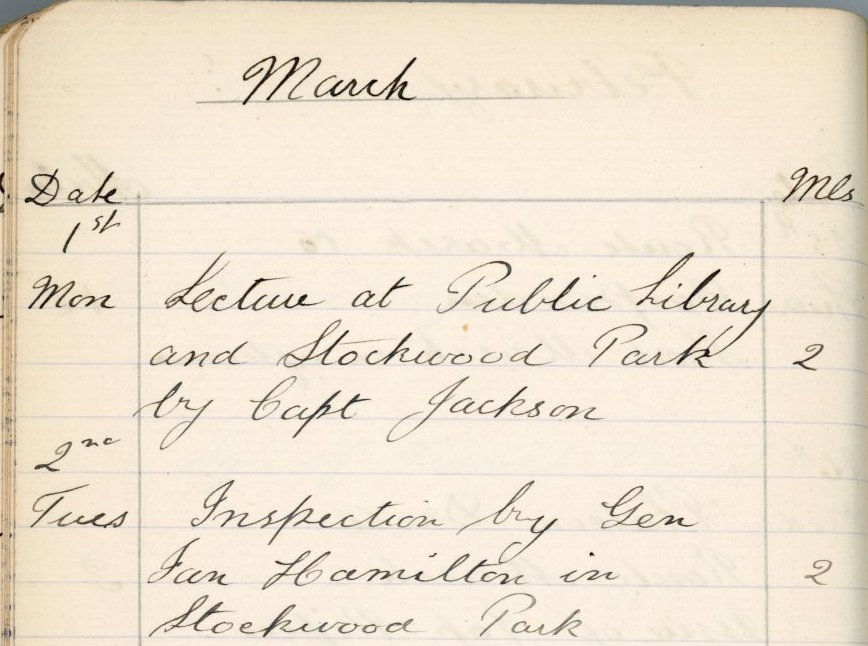 March
Date Mls
1st
Mon Lecture at Public Library
and Stockwood Park 2
by Capt Jackson
2nd
Tues Inspection by Gen
Ian Hamilton in 2
Stockwood Park